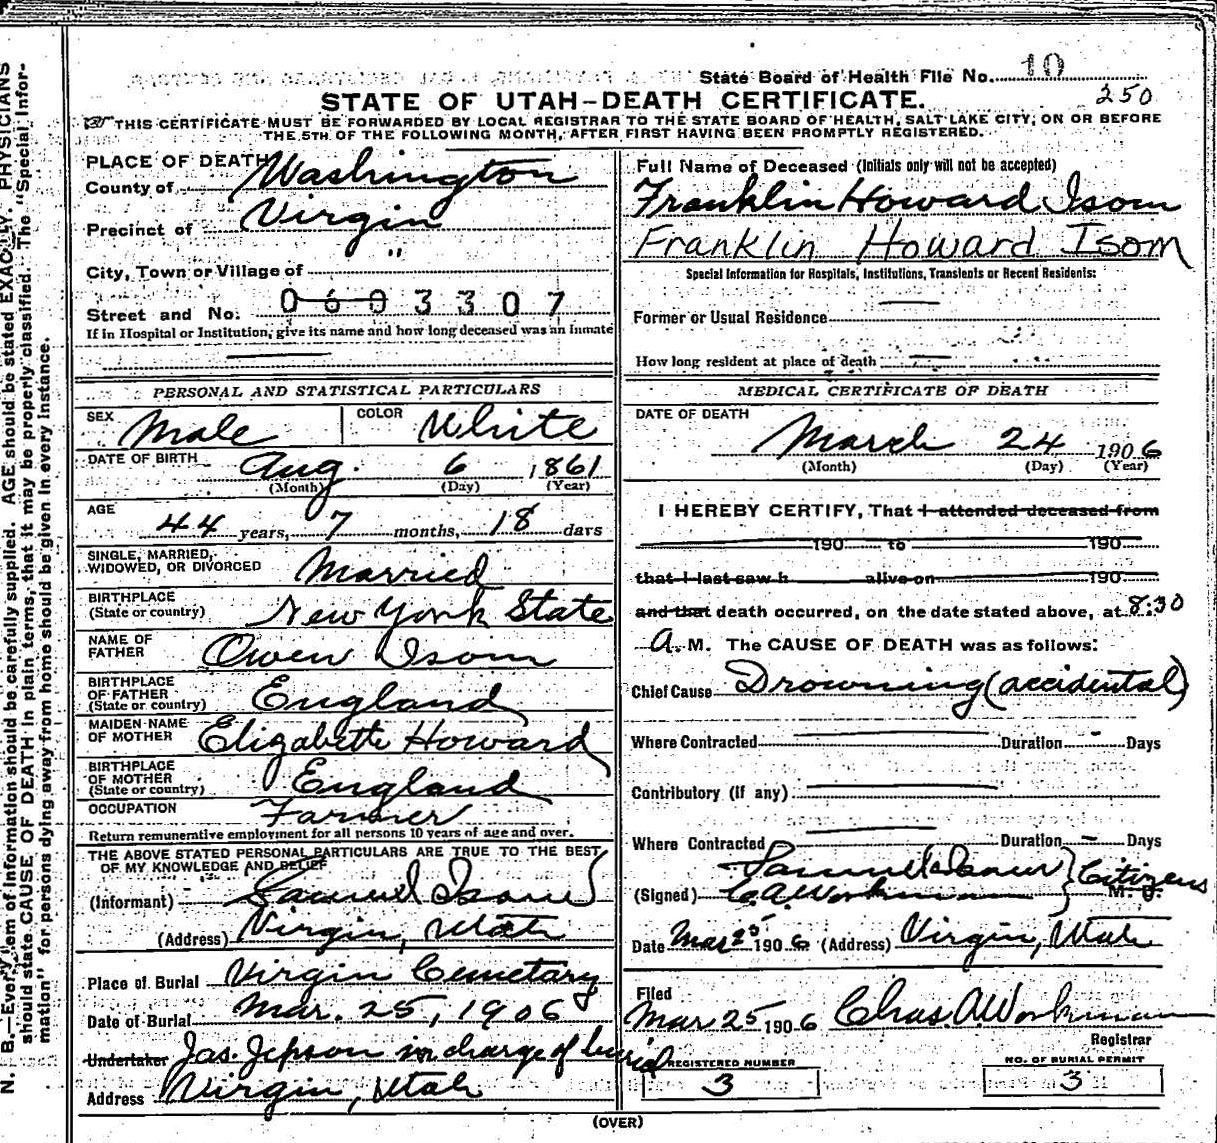 N. B.—Every item of information should be carefully supplied. AGE should be stated EXACTLY. PHYSICIANS
should state CAUSE OF DEATH in plain terms, that it may be properly classified. The "Special Infor-
mation" for persons dying away from home should be given in every instance.
State Board of Health File No. 10
250
STATE OF UTAH–DEATH CERTIFICATE.
THIS CERTIFICATE MUST BE FORWARDED BY LOCAL REGISTRAR TO THE STATE BOARD OF HEALTH, SALT LAKE CITY, ON OR BEFORE
THE 5TH OF THE FOLLOWING MONTH, AFTER FIRST HAVING BEEN PROMPTLY REGISTERED.
PLACE OF DEATH
County of Washington
Precinct of Virgin
City, Town or Village of "
Street and No. 0603307
If in Hospital or Institution, give its name and how long deceased was an inmate
PERSONAL AND STATISTICAL PARTICULARS
SEX Male COLOR White
DATE OF BIRTH Aug. 6 1861
(Month) (Day) (Year)
AGE 44 years, 7 months, 18 days
SINGLE, MARRIED,
WIDOWED, OR DIVORCED Married
BIRTHPLACE
(State or country) New York State
NAME OF
FATHER Owen Isom
BIRTHPLACE
OF FATHER
(State or country) England
MAIDEN NAME
OF MOTHER Elizabeth Howard
BIRTHPLACE
OF MOTHER
(State or country) England
OCCUPATION Farmer
Return remunerative employment for all persons 10 years of age and over.
THE ABOVE STATED PERSONAL PARTICULARS ARE TRUE TO THE BEST
OF MY KNOWLEDGE AND BELIEF
(Informant) Samuel Isom
(Address) Virgin, Utah
Place of Burial Virgin Cemetary
Date of Burial Mar. 25, 1906
Undertaker Jas. Jepson in charge of burial
Address Virgin, Utah
Full Name of Deceased (Initials only will not be accepted)
Franklin Howard Isom
Franklin Howard Isom
Special Information for Hospitals, Institutions, Transients or Recent Residents:
Former or Usual Residence
How long resident at place of death
MEDICAL CERTIFICATE OF DEATH
DATE OF DEATH
March 24 1906
(Month) (Day) (Year)
I HEREBY CERTIFY, That I attended deceased from
190 to 190
that I last saw h alive on 190
and that death occurred, on the date stated above, at 8:30
A. M. The CAUSE OF DEATH was as follows:
Chief Cause Drowning (accidental)
Where Contracted Duration Days
Contributory (if any)
Where Contracted Duration Days
Samuel Isom } Citizens
(Signed) C. A. Workman M. D.
Date Mar 25 1906 (Address) Virgin, Utah
Filed
Mar 25 1906 Chas. A. Workman
Registrar
REGISTERED NUMBER
3
NO. OF BURIAL PERMIT
3
(OVER)